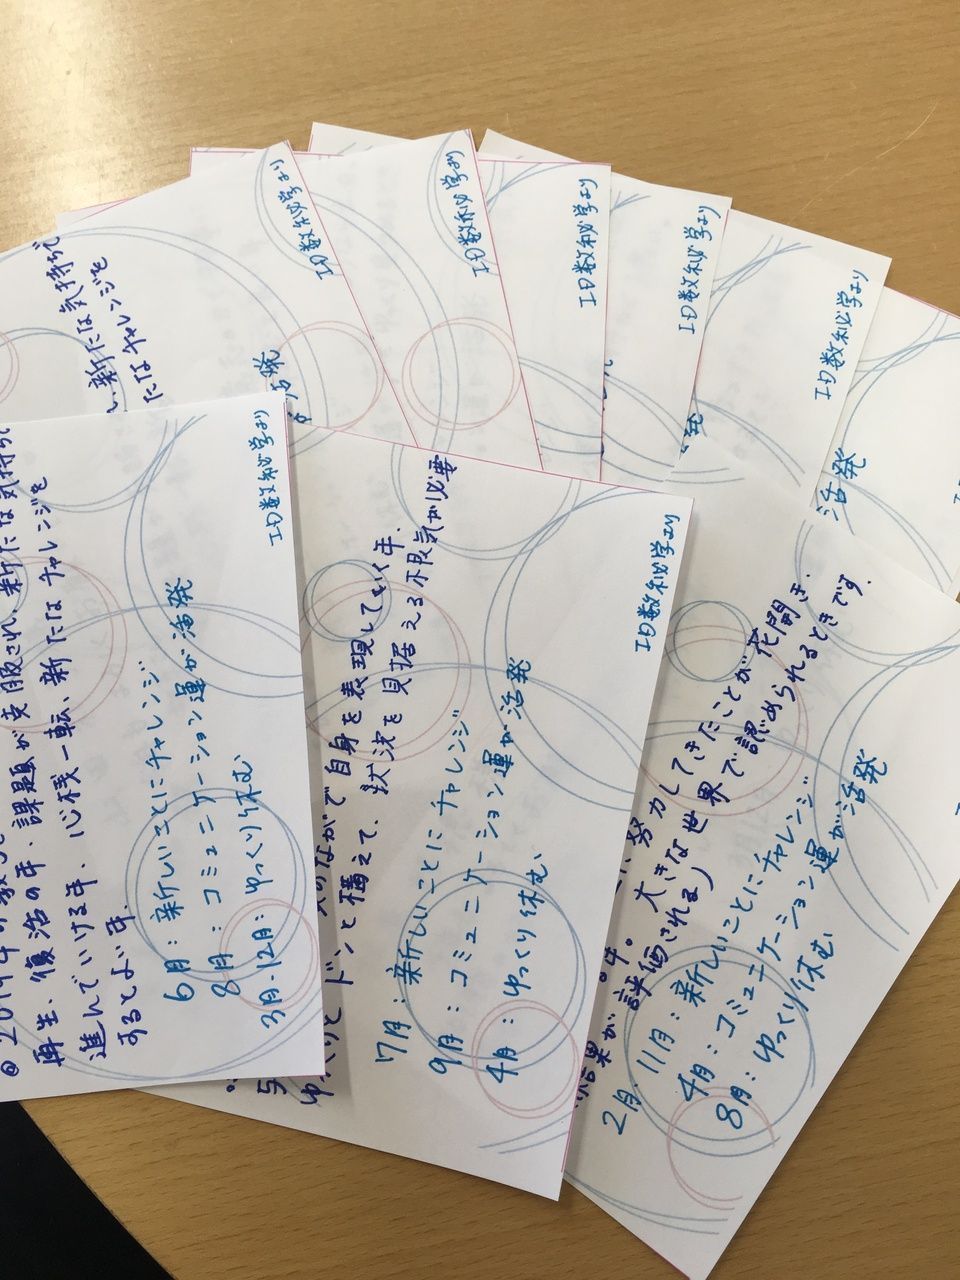 たな気持ちで
新たなチャレンジを
ID数秘学より
ID数秘学より
ID数秘学より
ID数秘学より
ID数秘学より
活発
再生、復活の年、課題が克服され、新たな気持ちで
進んでいける年、心機一転、新たなチャレンジを
するとよい年。
6月:新しいことにチャレンジ
8月:コミュニケーション運が活発
3月・12月:ゆっくり休む
ID数秘学より
のなかで自身を表現していく年。
ゆっくりと ドンと構えて、状況を見据える根気が必要
7月:新しいことにチャレンジ
9月:コミュニケーション運が活発
4月:ゆっくり休む
ID数秘学より
努力してきたことが花開き、
結果が 評価される) 大きな世界で認められるときです。
2月・11月:新しいことにチャレンジ
4月:コミュニケーション運が活発
8月:ゆっくり休む